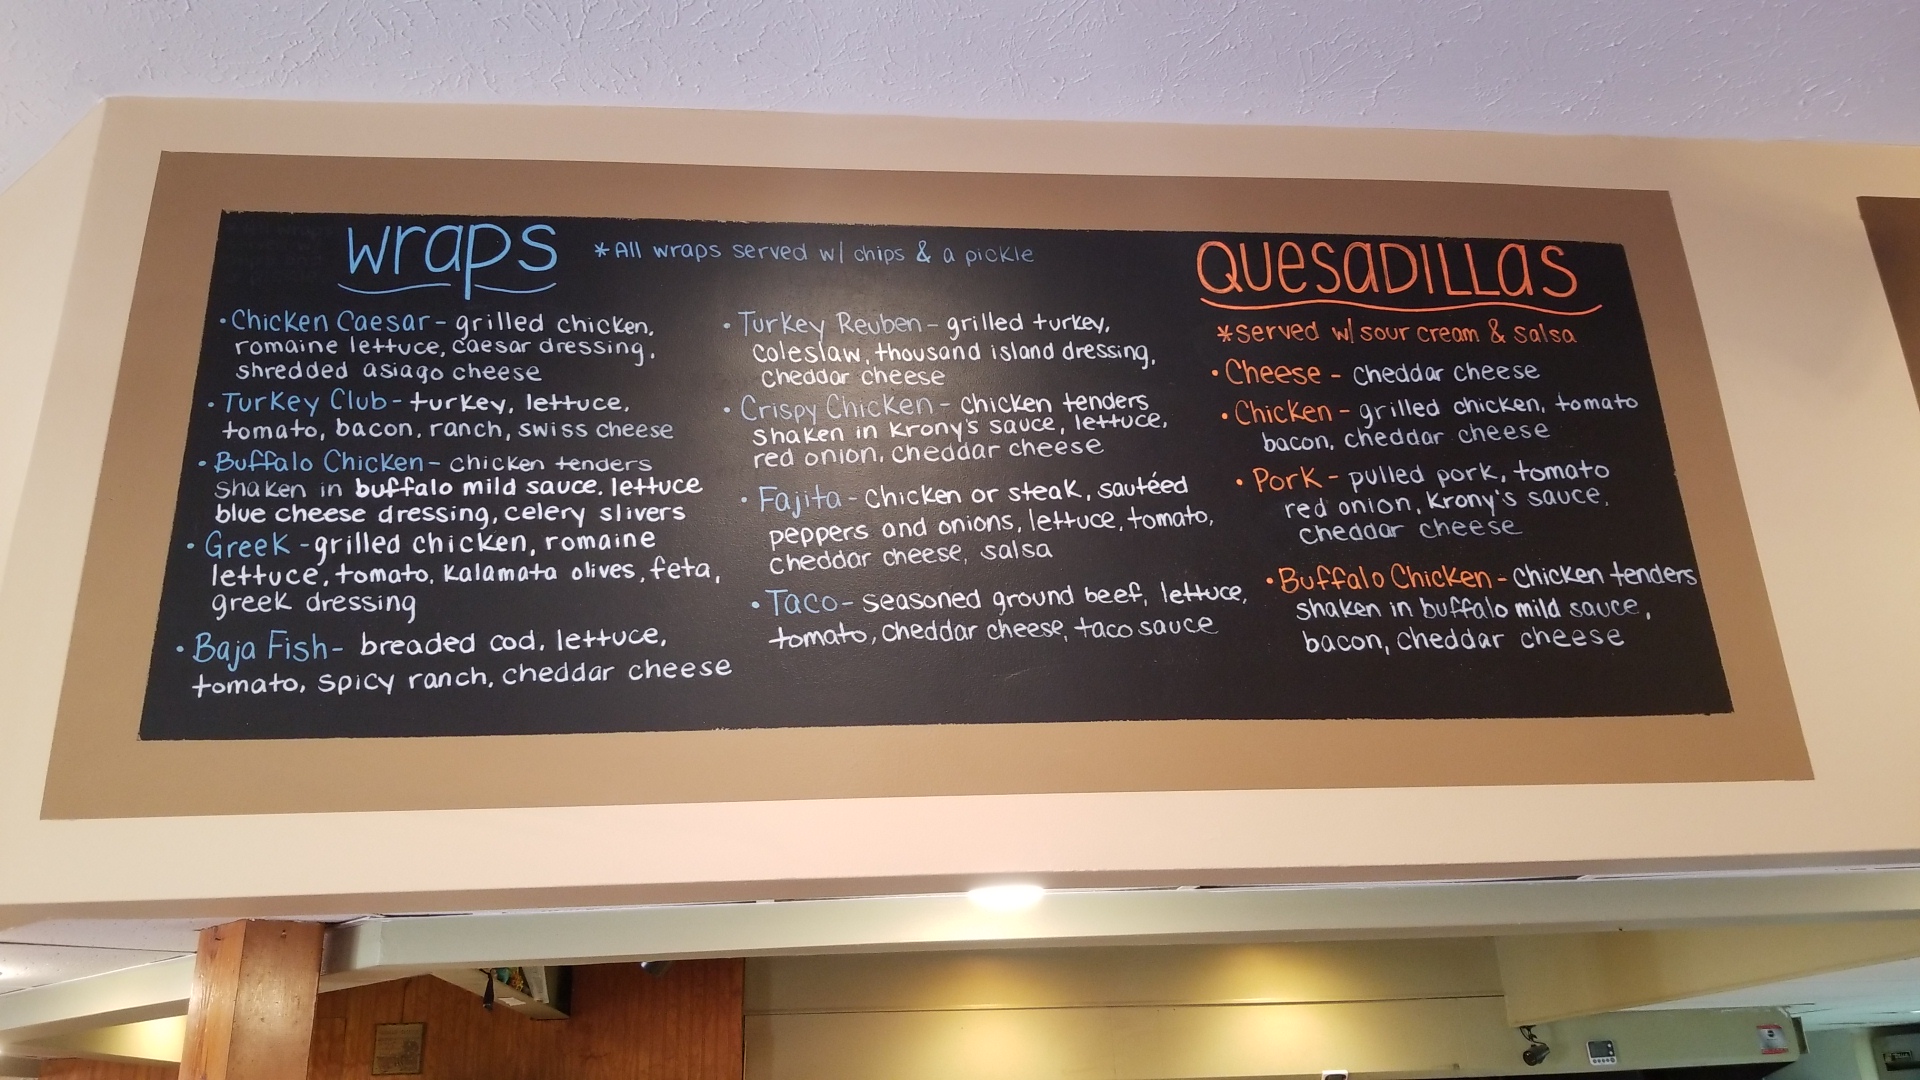 wraps
*All wraps served w/ chips & a pickle
• Chicken Caesar - grilled chicken,
romaine lettuce, caesar dressing,
shredded asiago cheese
• Turkey Club - turkey, lettuce,
tomato, bacon, ranch, swiss cheese
• Buffalo Chicken - chicken tenders
shaken in buffalo mild sauce, lettuce
blue cheese dressing, celery slivers
• Greek - grilled chicken, romaine
lettuce, tomato, kalamata olives, feta,
greek dressing
• Baja Fish - breaded cod, lettuce,
tomato, spicy ranch, cheddar cheese
• Turkey Reuben - grilled turkey,
coleslaw, thousand island dressing,
cheddar cheese
• Crispy Chicken - chicken tenders
shaken in Krony's sauce, lettuce,
red onion, cheddar cheese
• Fajita - chicken or steak, sautéed
peppers and onions, lettuce, tomato,
cheddar cheese, salsa
• Taco - seasoned ground beef, lettuce,
tomato, cheddar cheese, taco sauce
QUesaDILLas
*served w/ sour cream & salsa
• Cheese - cheddar cheese
• Chicken - grilled chicken, tomato
bacon, cheddar cheese
• Pork - pulled pork, tomato
red onion, Krony's sauce,
cheddar cheese
• Buffalo Chicken - chicken tenders
shaken in buffalo mild sauce,
bacon, cheddar cheese